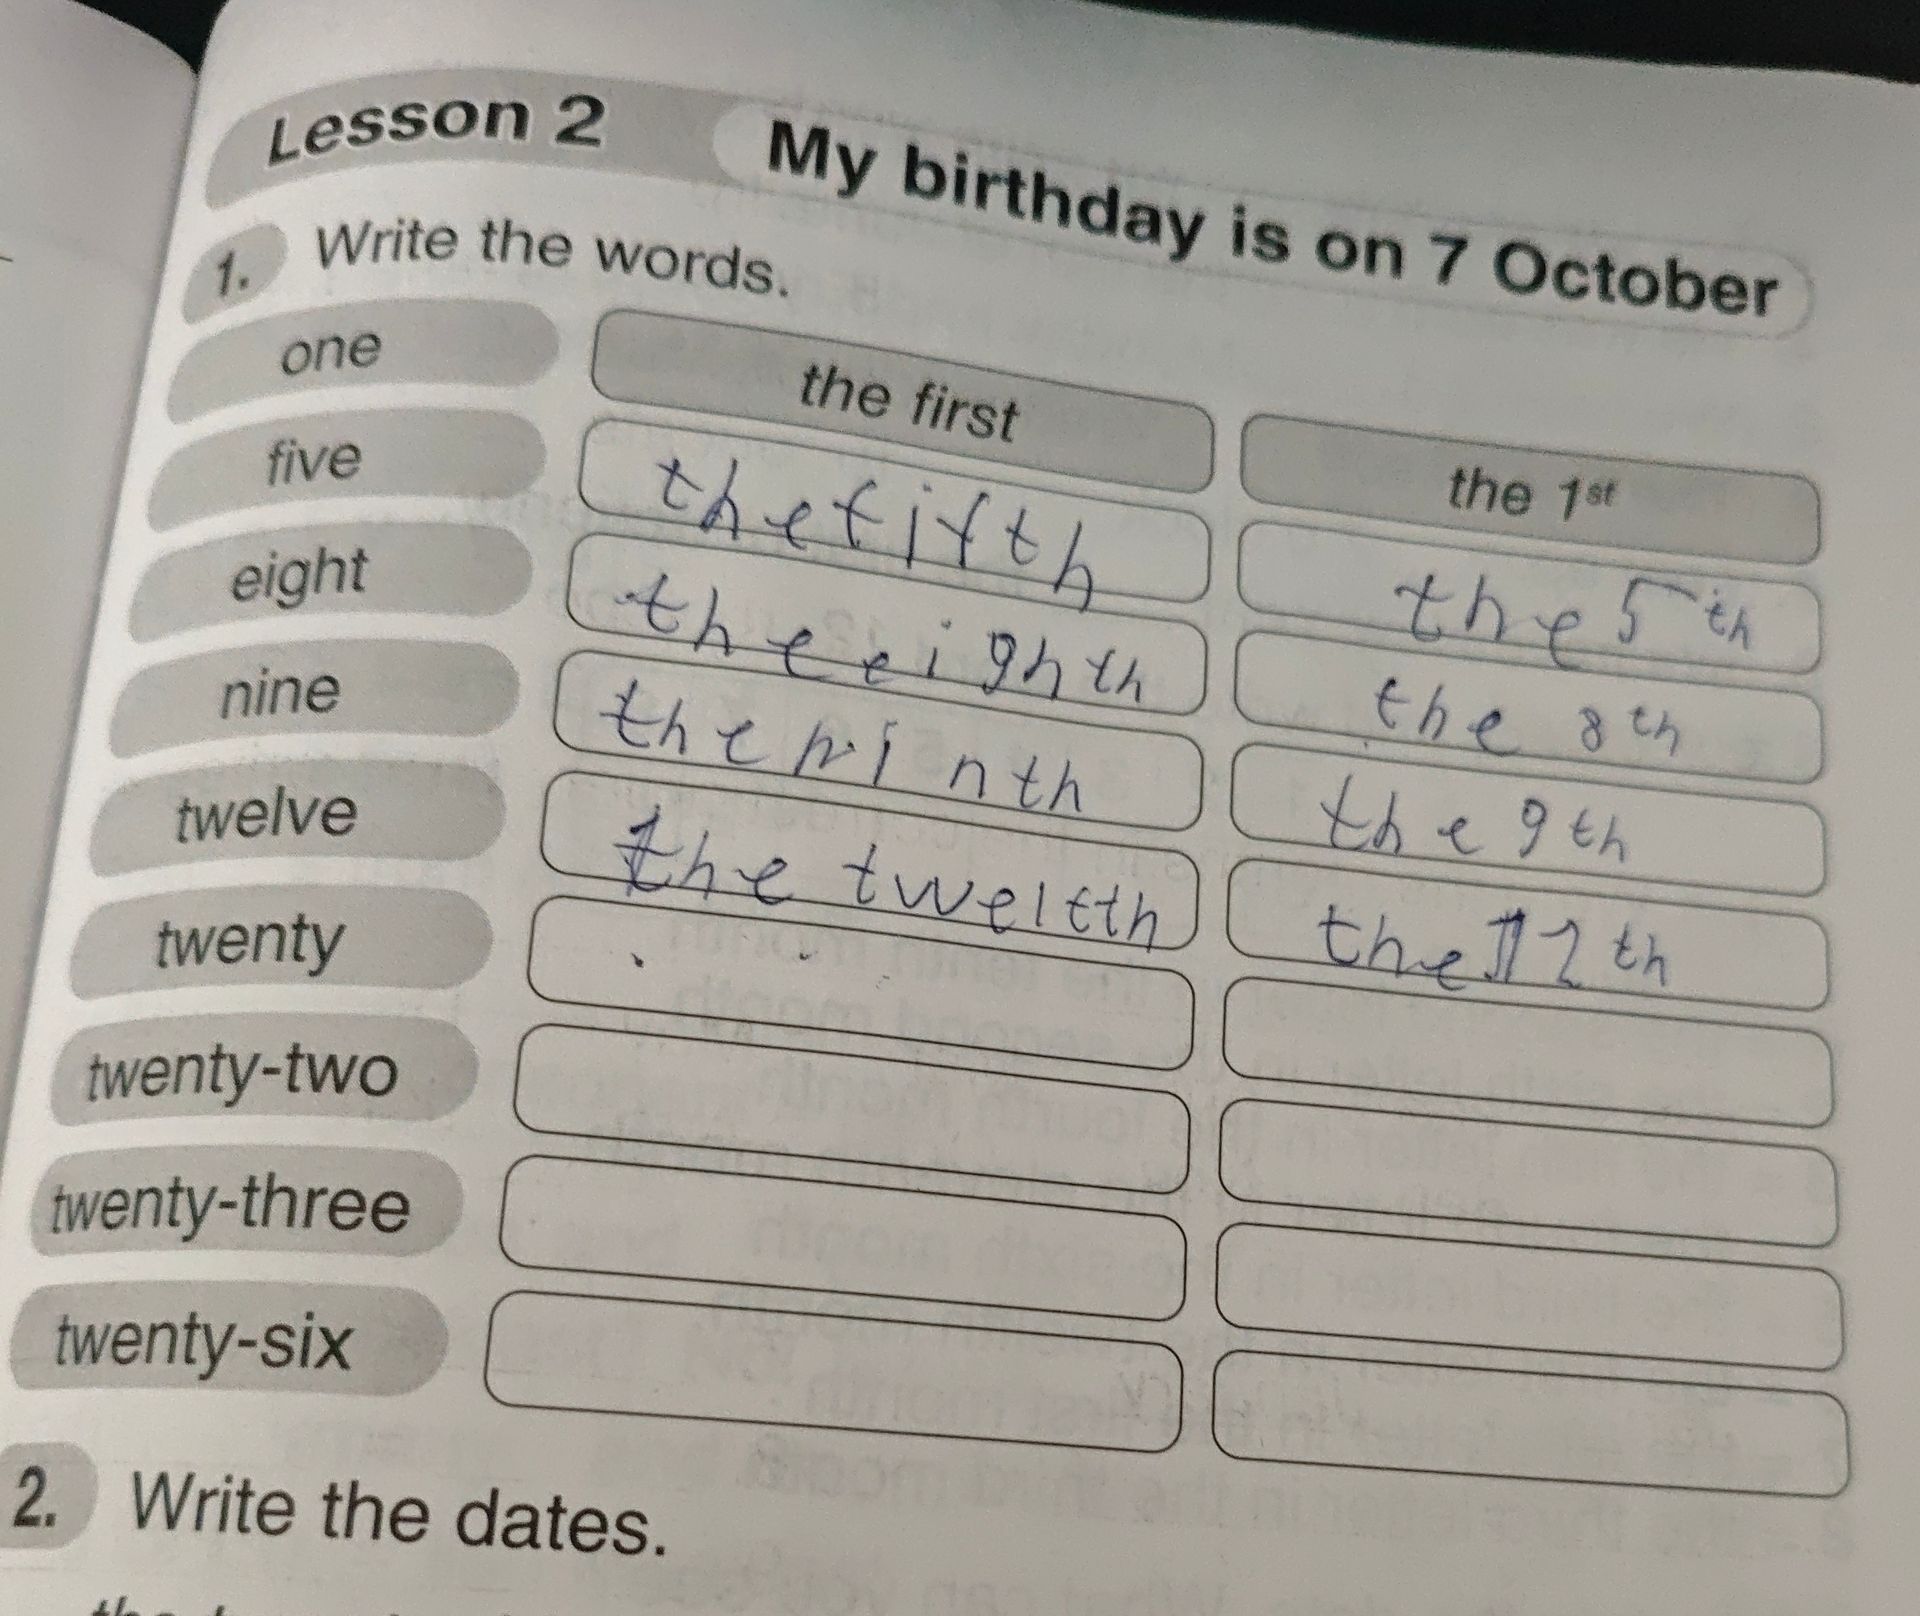 Lesson 2 My birthday is on 7 October
1. Write the words.
one the first the 1st
five the fifth the 5th
eight the eighth the 8th
nine the ninth the 9th
twelve the twelfth the 12th
twenty
twenty-two
twenty-three
twenty-six
2. Write the dates.